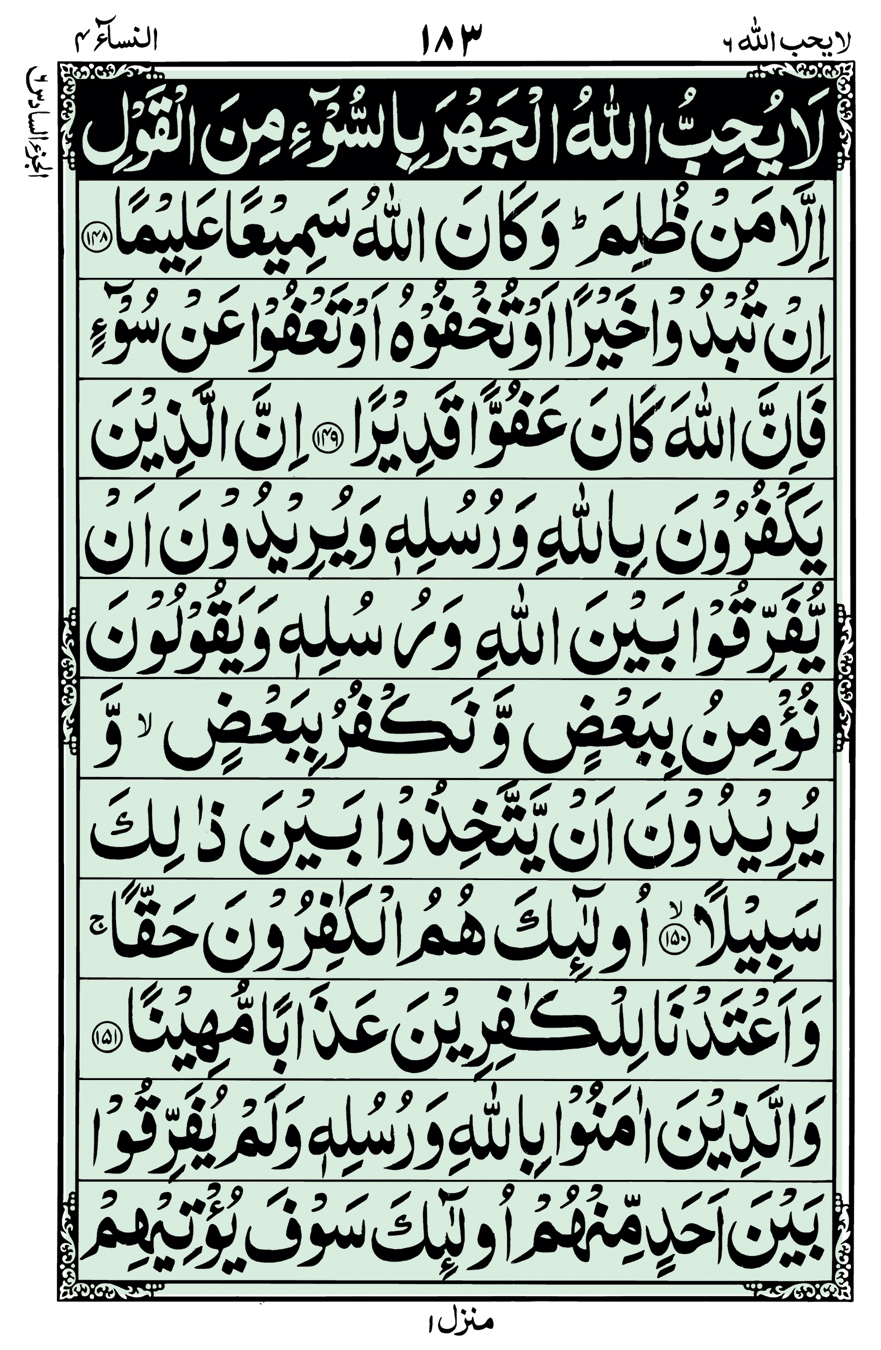 لا يحب الله ٦
١٨٣
النساء ٤
الجزء السادس ٦
لَا يُحِبُّ اللّٰهُ الْجَهْرَ بِالسُّوْٓءِ مِنَ الْقَوْلِ
اِلَّا مَنْ ظُلِمَ ؕ وَكَانَ اللّٰهُ سَمِيْعًا عَلِيْمًا ۝۱۴۸
اِنْ تُبْدُوْا خَيْرًا اَوْ تُخْفُوْهُ اَوْ تَعْفُوْا عَنْ سُوْٓءٍ
فَاِنَّ اللّٰهَ كَانَ عَفُوًّا قَدِيْرًا ۝۱۴۹ اِنَّ الَّذِيْنَ
يَكْفُرُوْنَ بِاللّٰهِ وَرُسُلِهٖ وَيُرِيْدُوْنَ اَنْ
يُّفَرِّقُوْا بَيْنَ اللّٰهِ وَرُسُلِهٖ وَيَقُوْلُوْنَ
نُؤْمِنُ بِبَعْضٍ وَّنَكْفُرُ بِبَعْضٍ ۙ وَّ
يُرِيْدُوْنَ اَنْ يَّتَّخِذُوْا بَيْنَ ذٰلِكَ
سَبِيْلًا ۙ۝۱۵۰ اُولٰٓئِكَ هُمُ الْكٰفِرُوْنَ حَقًّا ۚ
وَاَعْتَدْنَا لِلْكٰفِرِيْنَ عَذَابًا مُّهِيْنًا ۝۱۵۱
وَالَّذِيْنَ اٰمَنُوْا بِاللّٰهِ وَرُسُلِهٖ وَلَمْ يُفَرِّقُوْا
بَيْنَ اَحَدٍ مِّنْهُمْ اُولٰٓئِكَ سَوْفَ يُؤْتِيْهِمْ
منزل ۱